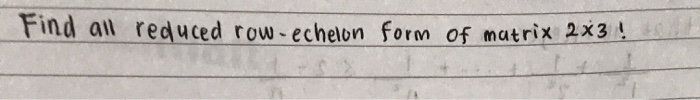 Find all reduced row-echelon form of matrix 2x3!